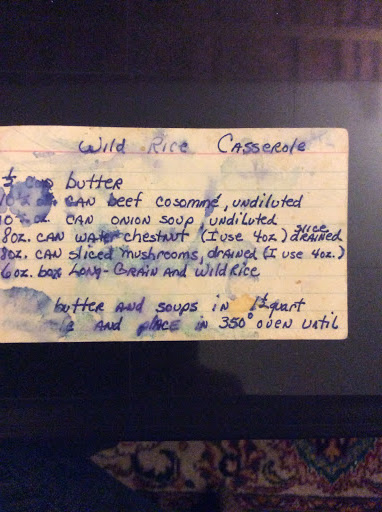 Wild Rice Casserole
butter
oz. CAN beef cosommé, undiluted
oz. CAN ONION SOUP, undiluted
8oz. CAN WATER chestnut (I use 4oz) slice DRAINED
8oz. CAN sliced mushrooms, drained (I use 4oz.)
6 oz. box Long-GRAIN and Wild Rice
butter AND soups in 1½ quart
AND place in 350° oven until